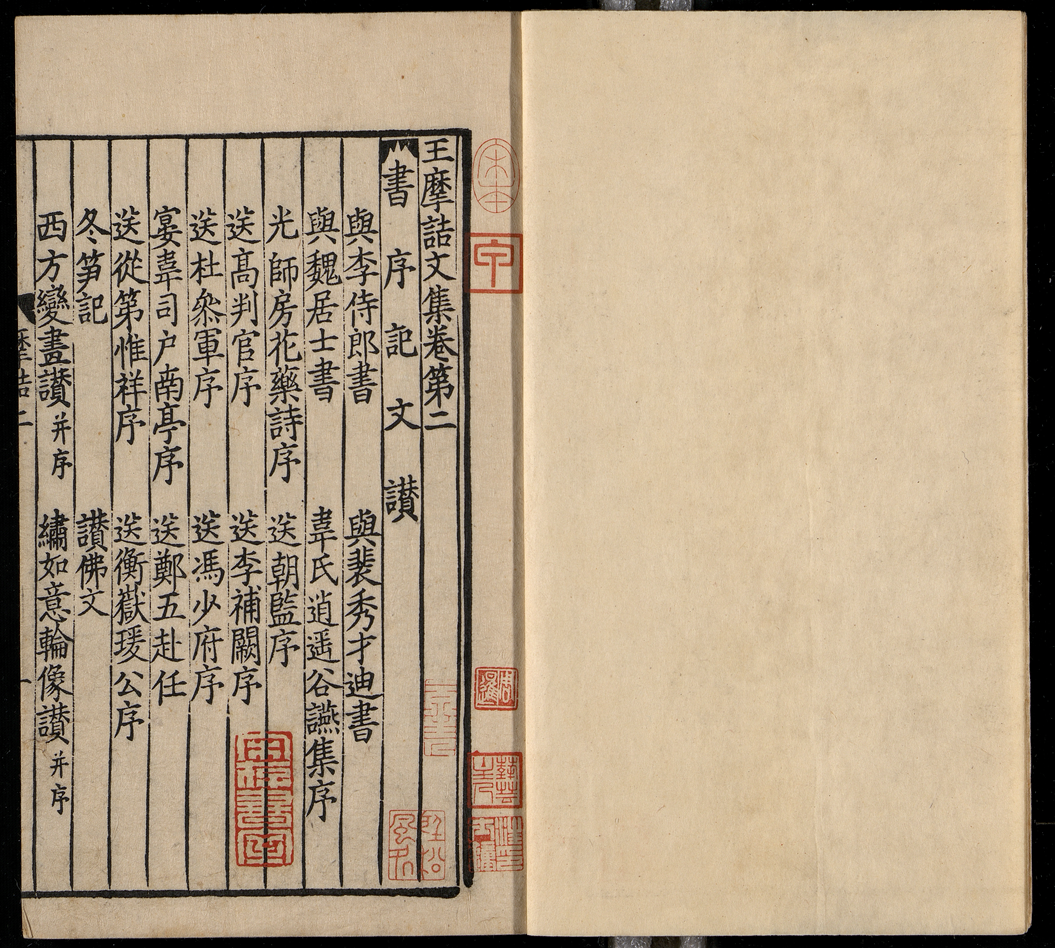 王摩詰文集卷第二
書 序 記 文 讃
與李侍郎書 與裴秀才迪書
與魏居士書 韋氏逍遥谷讌集序
光師房花藥詩序 送朝監序
送高判官序 送李補闕序
送杜叅軍序 送馮少府序
宴韋司户南亭序 送鄭五赴任
送從第惟祥序 送衡嶽瑗公序
冬笋記 讃佛文
西方變畫讃并序 繡如意輪像讃并序
宋本